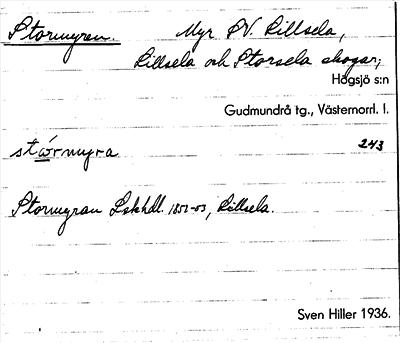 Stormyran. Myr SV. Lillsela,
Lillsela och Storsela skogar,
Högsjö s:n
Gudmundrå tg., Västernorrl. l.
243
stω̅́rmyra
Stormyran Lskhdl. 1851-53, Lillsela.
Sven Hiller 1936.